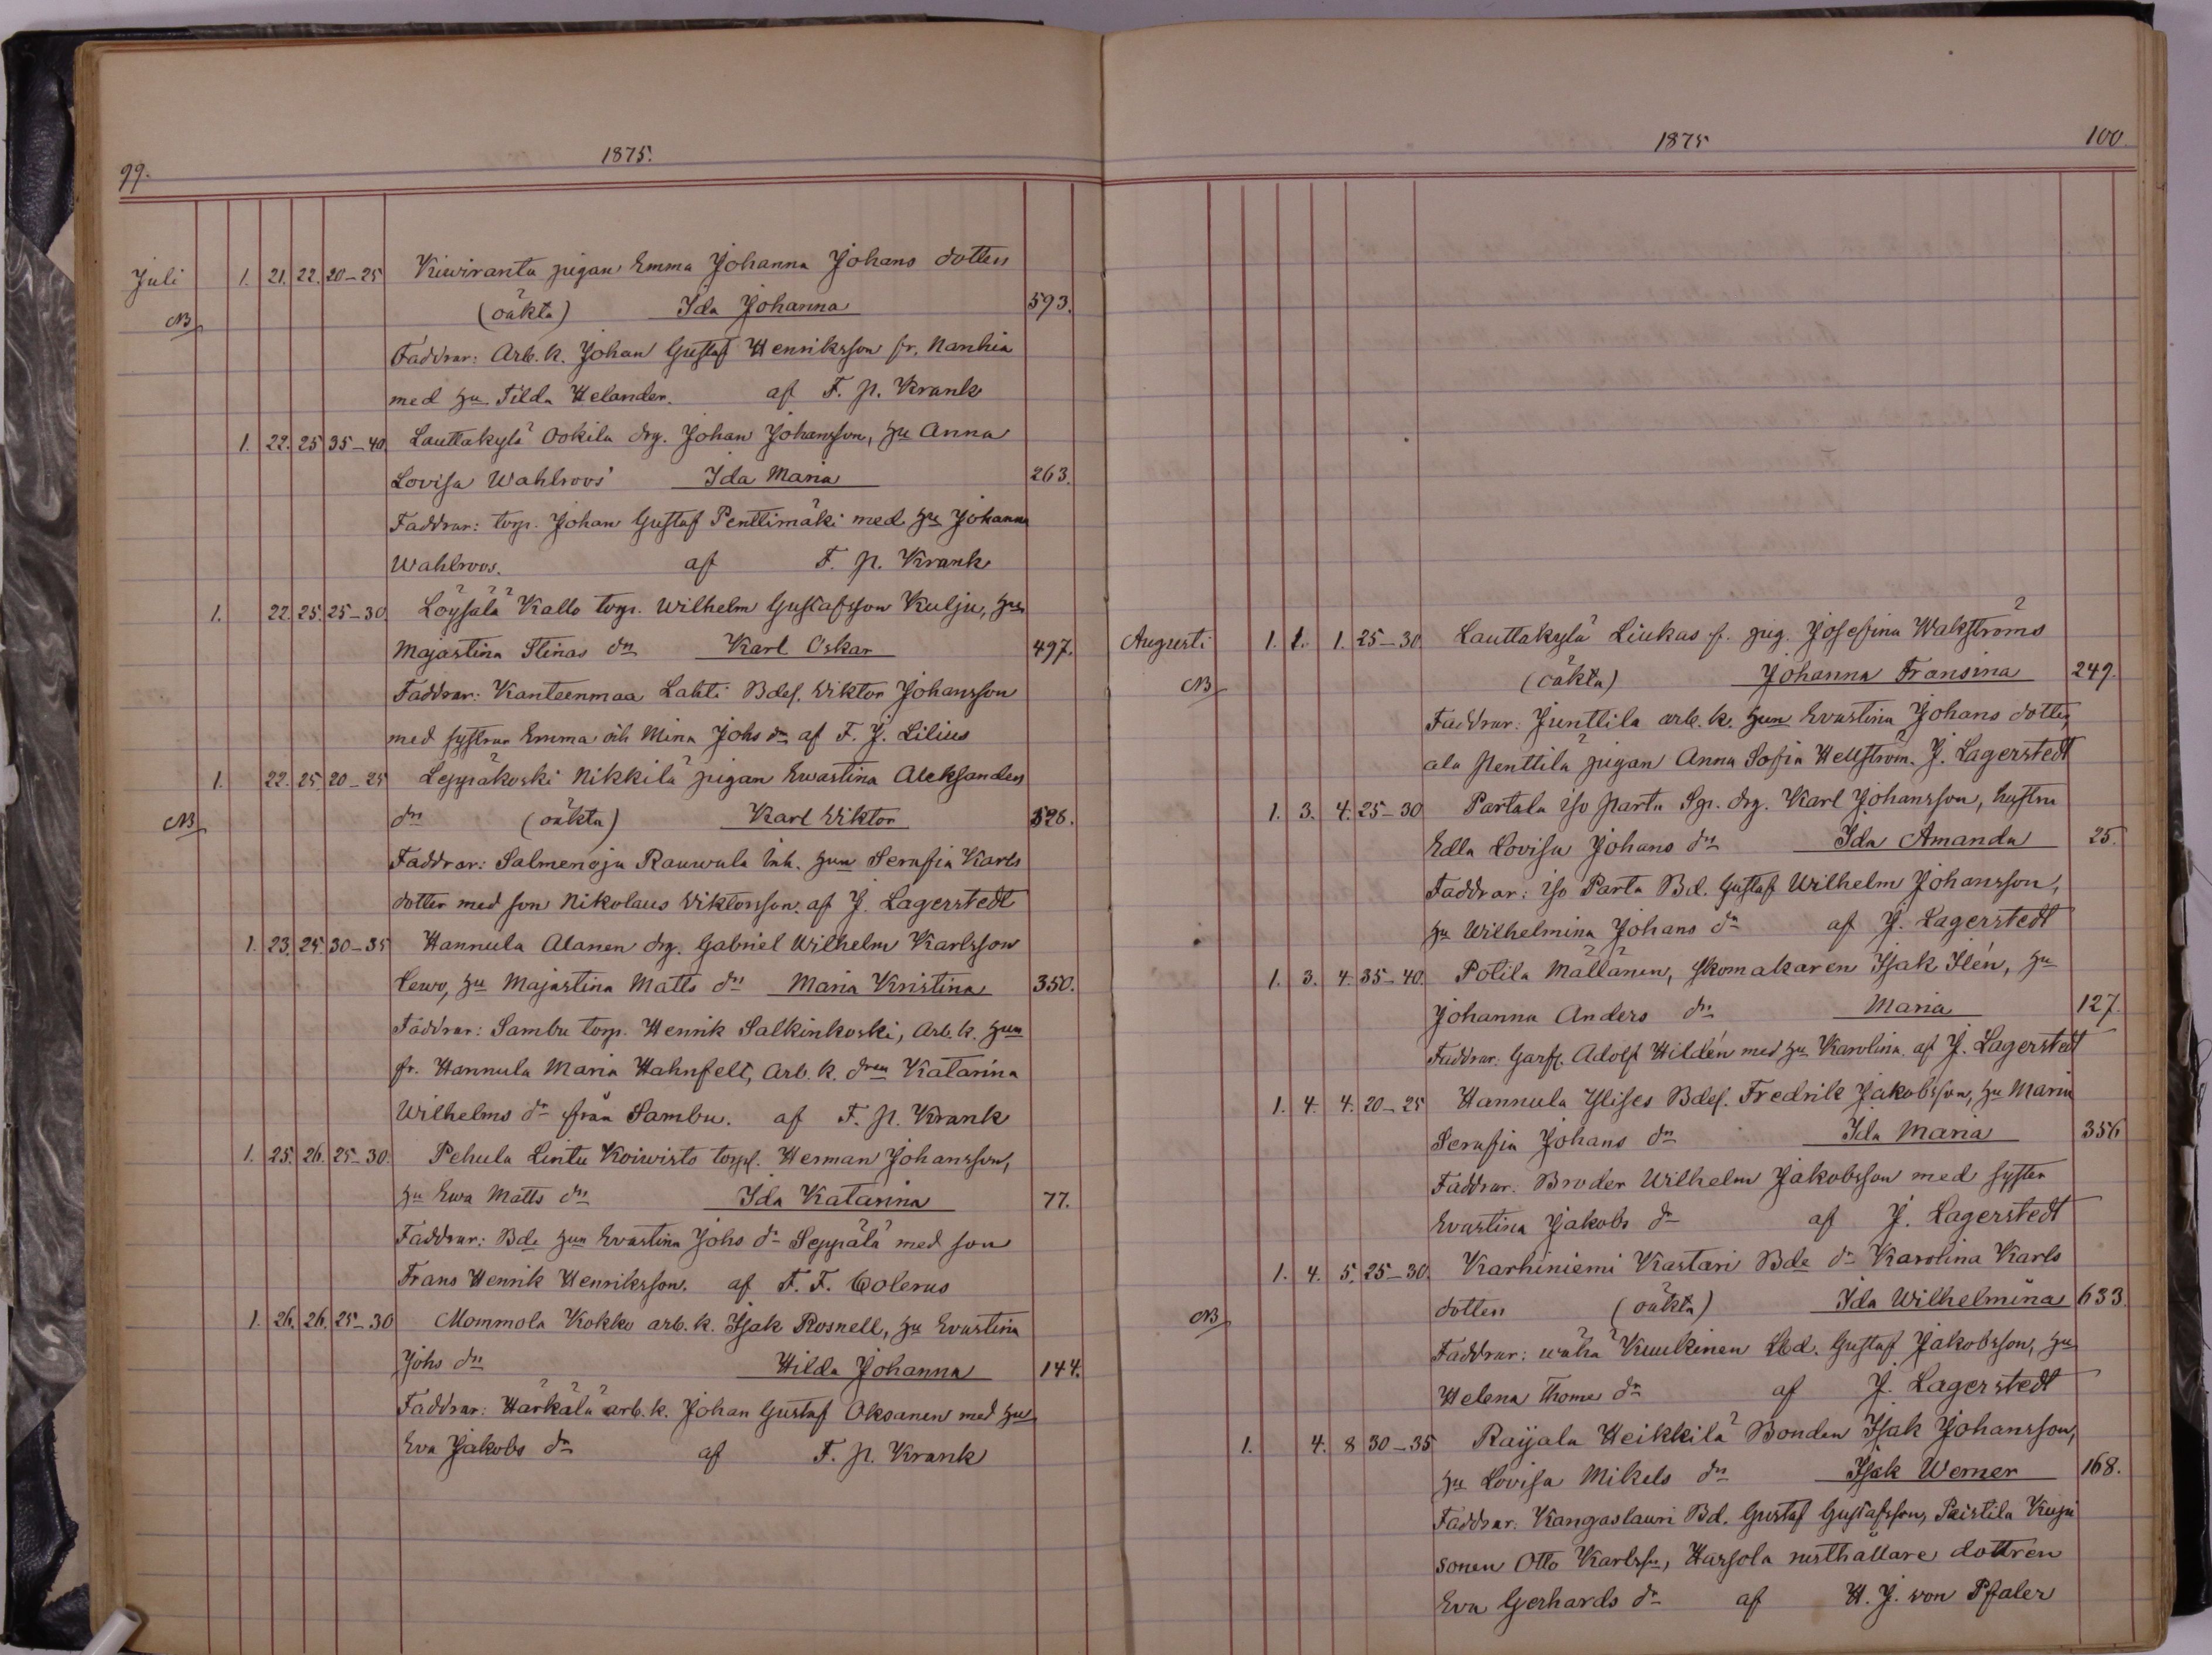 99.
1875.
Juli 1. 21. 22. 20–25 Kiviranta pigan Emma Johanna Johans dotters
NB (oäkta) Ida Johanna 593.
Faddrar: Arb. k. Johan Gustaf Henriksson fr. Nanhia
med hu Tilda Helander. af F. p. Krank
1. 22. 25 35–40. Lauttakylä Ookila drg. Johan Johansson, hu Anna
Lovisa Wahlroos' Ida Maria 263.
Faddrar: torp. Johan Gustaf Penttimäki med hu Johanna
Wahlroos. af F. p. Krank
1. 22. 25. 25–30. Löysälä Kallo torp. Wilhelm Gustafsson Kulju, hus
Majastina Stinas dr Karl Oskar 497.
Faddrar: Kanteenmaa Lahti Bdes. Wiktor Johansson
med systrar Emma och Mina Johs dr af F. J. Lilius
1. 22. 25. 20–25 Leppäkoski Nikkilä pigan Ewastina Aleksanders
NB drs (oäkta) Karl Wiktor 526.
Faddrar: Salmenoja Rauwula inh. hun Serafia Karls
dotter med son Nikolaus Wiktorsson. af J. Lagerstedt
1. 23. 25. 30–35 Hannula Alanen drg. Gabriel Wilhelm Karlsson
Lewo, hu Majastina Matts drs Maria Kristina 350.
Faddrar: Sambu torp. Henrik Salkinkoski, Arb. k. hun
fr. Hannula Maria Hahnfelt, Arb. k. dren Katarina
Wilhelms dr från Sambu. af F. p. Krank
1. 25. 26. 25–30. Pehula Lintu Koiwisto torps. Herman Johansson,
hu Ewa Matts drs Ida Katarina 77.
Faddrar: Bde hun Evastina Johs dr Seppälä med son
Frans Henrik Henriksson. af F. F. Colerus
1. 26. 26. 25–30 Mommola Kokko arb. k. Isak Rosnell, hu Evastina
Johs drs Hilda Johanna 144.
Faddrar: Härkälä arb. k. Johan Gustaf Oksanen med hu
Eva Jakobs dr af F. p. Krank
1875
100.
Augusti 1. 1. 1. 25–30. Lauttakylä Liukas f. pig. Josefina Wakströms
NB (oäkta) Johanna Fransina 249.
Faddrar: Junttila arb. k. hun Evastina Johans dotter,
ala Penttilä pigan Anna Sofia Hellström. J. Lagerstedt
1. 3. 4. 25–30 Partala iso Parta Sp. drg. Karl Johansson, hustru
Edla Lovisa Johans drs Ida Amanda 25.
Faddrar: iso Parta Bd. Gustaf Wilhelm Johansson,
hu Wilhelmina Johans dr af J. Lagerstedt
1. 3. 4. 35–40. Potila Mällänen, skomakaren Isak Ilén, hu
Johanna Anders drs Maria 127.
Faddrar. Garf. Adolf Hildén med hu Karolina. af J. Lagerstedt
1. 4. 4. 20–25 Hannula Ylises Bdes. Fredrik Jakobsson, hu Maria
Serafia Johans drs Ida Maria 356
Faddrar. Broder Wilhelm Jakobsson med syster
Evastina Jakobs dr af J. Lagerstedt
1. 4. 5. 25–30. Karhiniemi Kastari Bde dr Karolina Karls
NB dotters (oäkta) Ida Wilhelmina 633.
Faddrar: wähä Kuukinen Lbd. Gustaf Jakobsson, hu
Helena Thome dr af J. Lagerstedt
1. 4. 8 30–35 Raijala Heikkilä Bonden Isak Johansson,
hu Lovisa Mikels drs Isak Werner 168.
Faddrar. Kangaslauri Bd. Gustaf Gustafsson, Paistila Kuja
sonen Otto Karlssn, Harjola rusthållare dottren
Eva Gerhards dr af H. J. von Pfaler